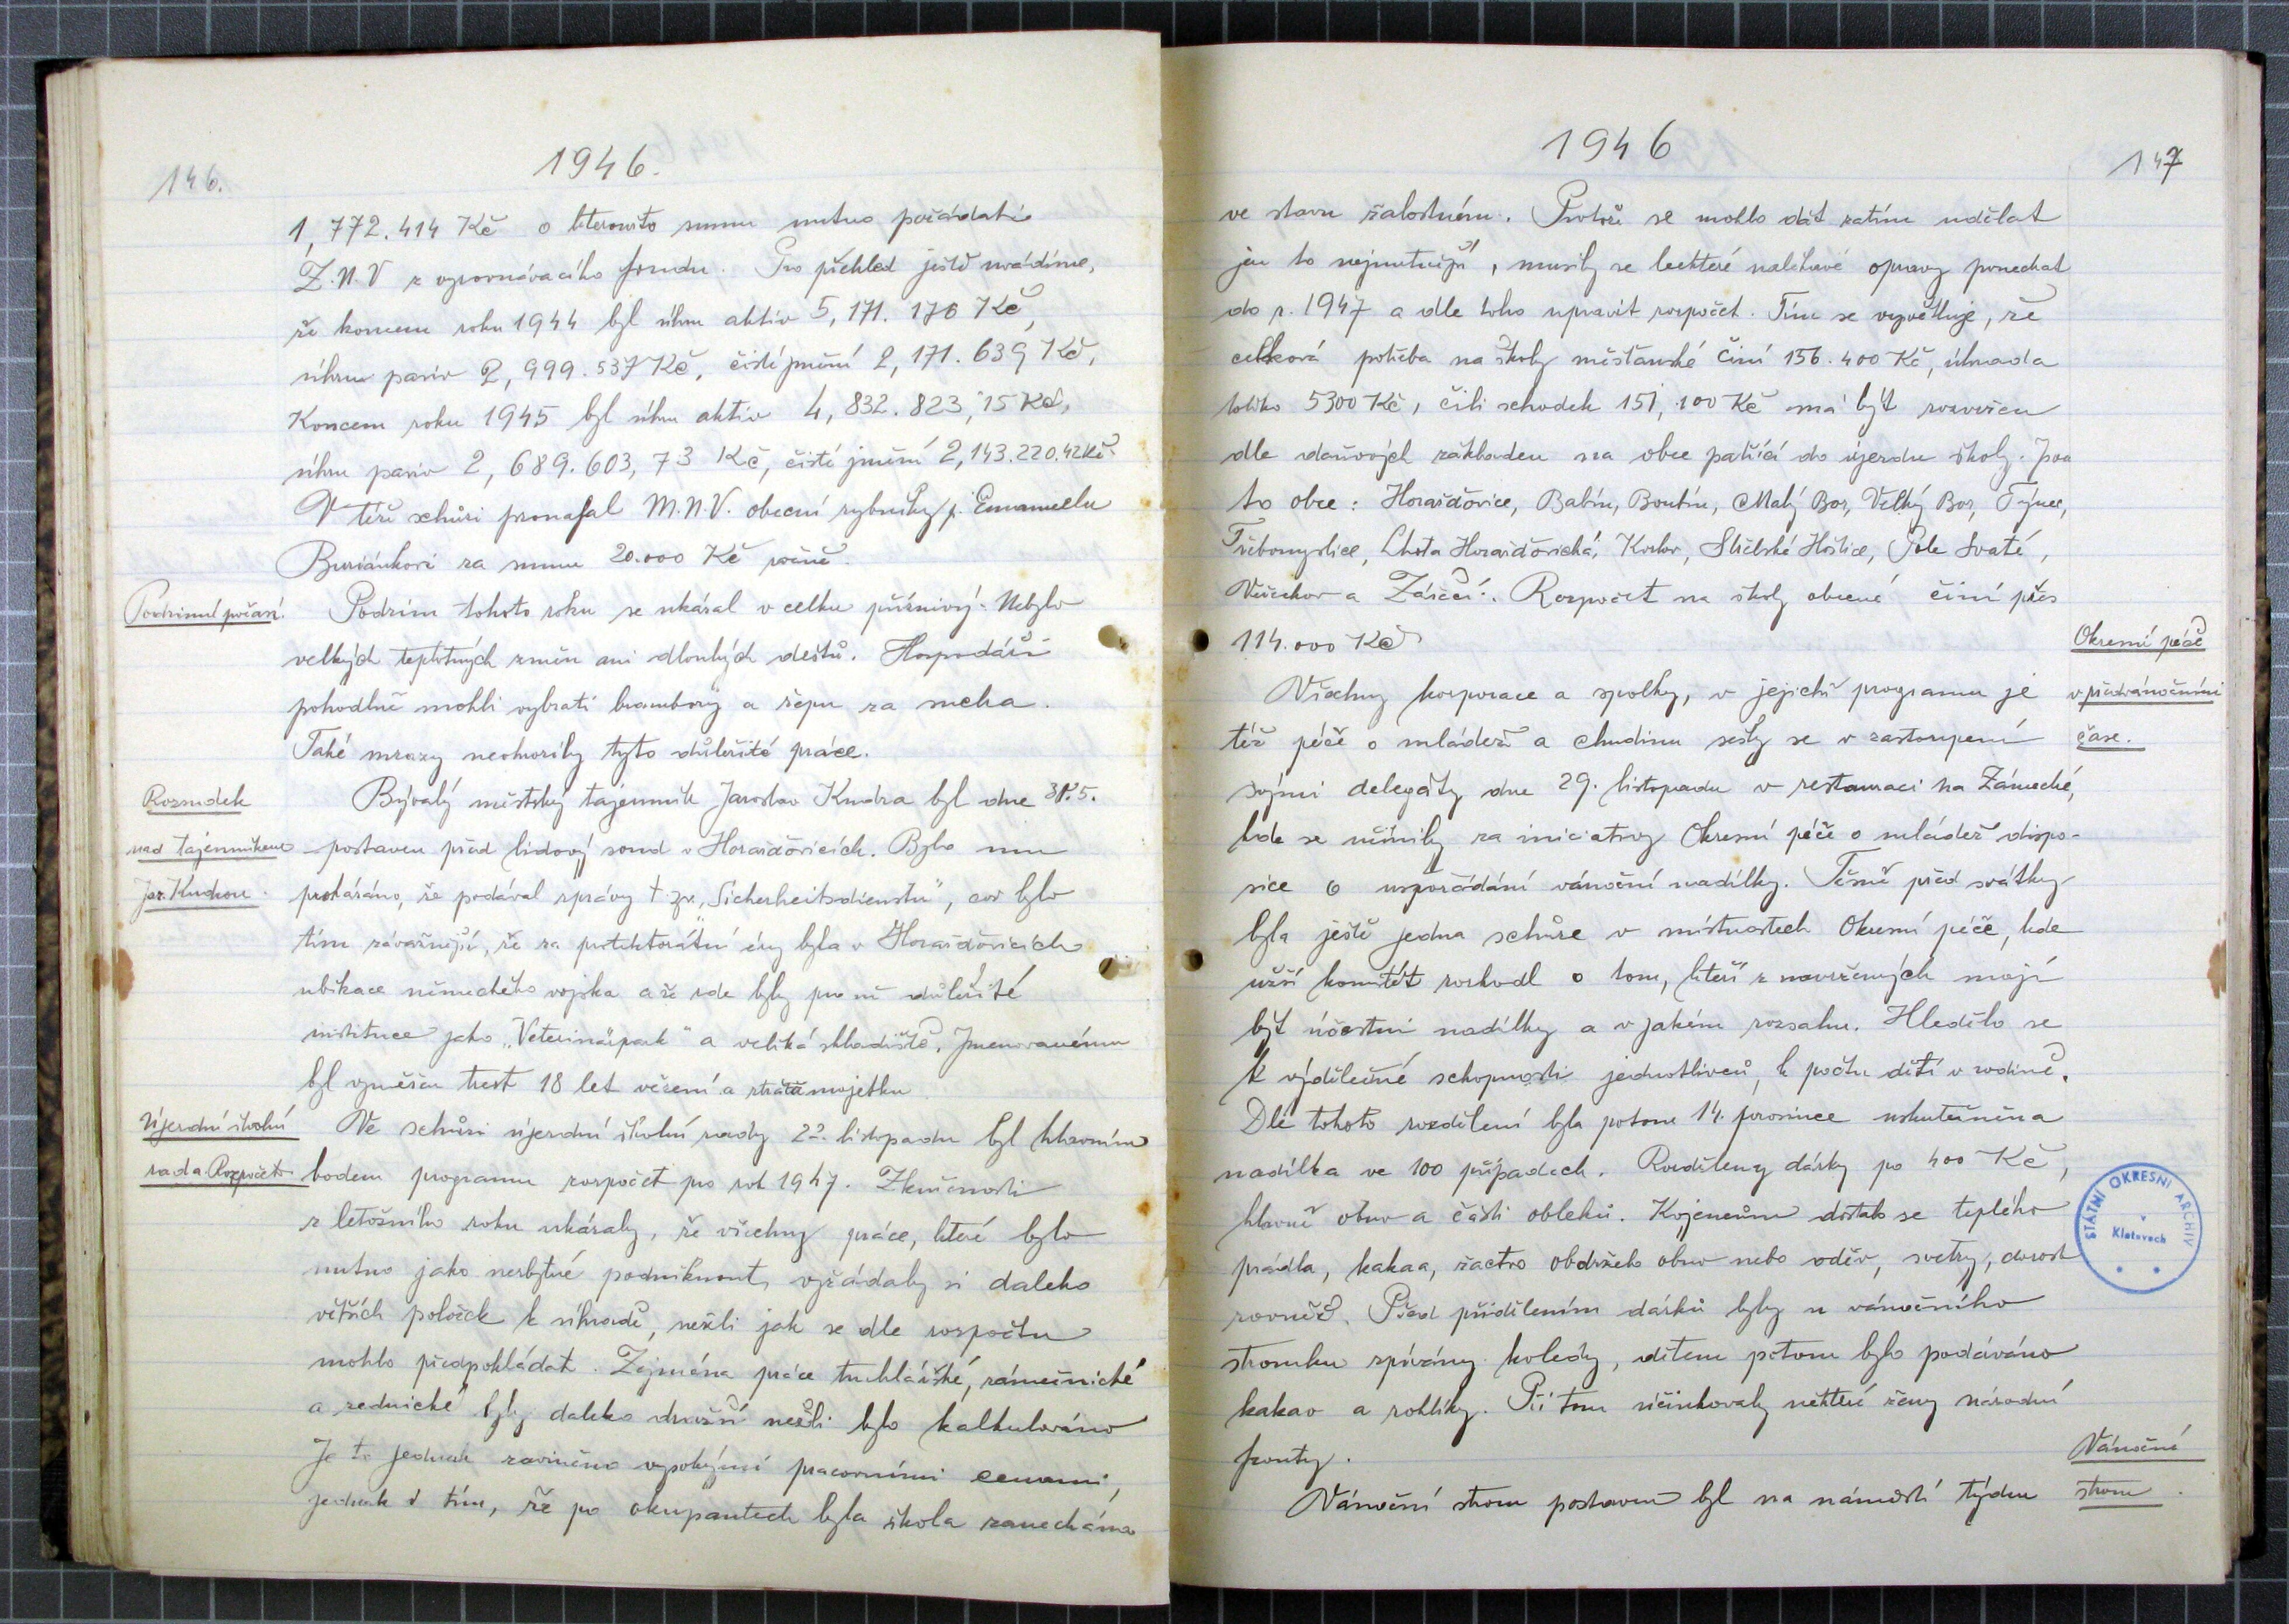 146.
1946.
1,772.414 Kč o kteroužto sumu nutno požádati
Z.N.V z vyrovnávacího fondu. Pro přehled ještě uvádíme,
že koncem roku 1944 byl úhrn aktiv 5,171.176 Kč,
úhrn pasiv 2,999.537 Kč, čisté jmění 2,171.639 Kč,
Koncem roku 1945 byl úhrn aktiv 4,832.823,15 Kč,
úhrn pasiv 2,689.603,73 Kč, čisté jmění 2,143.220.42 Kč.
V téže schůzi pronajal M.N.V. obecní rybníky p. Emanuelu
Buriánkovi za sumu 20.000 Kč ročně.
Podzimní počasí.
Podzim tohoto roku se ukázal v celku příznivý. Nebylo
velkých teplotných změn ani dlouhých dešťů. Hospodáři
pohodlně mohli vybrati brambory a řepu za sucha.
Také mrazy neohrozily tyto důležité práce.
Rozsudek
nad tajemníkem
Jar. Kudrou.
Bývalý městský tajemník Jaroslav Kudra byl dne 31.5.
postaven před lidový soud v Horažďovicích. Bylo mu
prokázáno, že podával zprávy t zv. „Sicherheitsdienstu", což bylo
tím závažnější, že za protektorátní éry byla v Horažďovicích
ubikace německého vojska a že zde byly pro ně důležité
instituce jako „Veterinärpark" a veliká skladiště. Jmenovanému
byl vyměřen trest 18 let vězení a ztráta majetku.
Újezdní školní
rada. Rozpočet
Ve schůzi újezdní školní rady 22. listopadu byl hlavním
bodem programu rozpočet pro rok 1947. Zkušenosti
z letošního roku ukázaly, že všechny práce, které bylo
nutno jako nezbytné podniknout, vyžádaly si daleko
větších položek k úhradě, nežli jak se dle rozpočtu
mohlo předpokládat. Zejména práce truhlářské, zámečnické
a zednické byly daleko dražší nežli bylo kalkulováno
Je to jednak zaviněno vysokými pracovními cenami,
jednak i tím, že po okupantech byla škola zanechána
1946
147
ve stavu žalostném. Protože se mohlo dát zatím udělat
jen to nejnutnější, musily se leckteré naléhavé opravy ponechat
do r. 1947 a dle toho upravit rozpočet. Tím se vysvětluje, že
celková potřeba na školy měšťanské činí 156.400 Kč, úhrada
toliko 5300 Kč, čili schodek 151,100 Kč má být rozvržen
dle daňových základen na obce patřící do újezdu školy. Jsou
to obce: Horažďovice, Babín, Boubín, Malý Bor, Velký Bor, Týnec,
Třebomyslice, Lhota Horažďovická, Kozlov, Střelské Hoštice, Pole Svaté,
Věřechov a Zářečí. Rozpočet na školy obecné činí přes
114.000 Kč
Okresní péče
v předvánočním
čase.
Všechny korporace a spolky, v jejichž programu je
též péče o mládež a chudinu sešly se v zastoupení
svými delegáty dne 29. listopadu v restauraci na Zámecké,
kde se učinily za iniciativy Okresní péče o mládež dispo-
sice o uspořádání vánoční nadílky. Těsně před svátky
byla ještě jedna schůze v místnostech Okresní péče, kde
užší komitét rozhodl o tom, kteří z navržených mají
být účastni nadílky a v jakém rozsahu. Hledělo se
k výdělečné schopnosti jednotlivců, k počtu dětí v rodině.
Dle tohoto rozdělení byla potom 14. prosince uskutečněna
nadílka ve 100 případech. Rozděleny dárky po 400 Kč,
hlavně obuv a části obleků. Kojencům dostalo se teplého
prádla, kakaa, žactvo obdrželo obuv nebo oděv, svetry, dorost
rovněž. Před přidělením dárků byly u vánočního
stromku zpívány koledy, dětem potom bylo podáváno
kakao a rohlíky. Při tom účinkovaly některé ženy národní
fronty.
Vánoční
strom.
Vánoční strom postaven byl na náměstí týden
STÁTNÍ OKRESNÍ ARCHIV
v
Klatovech